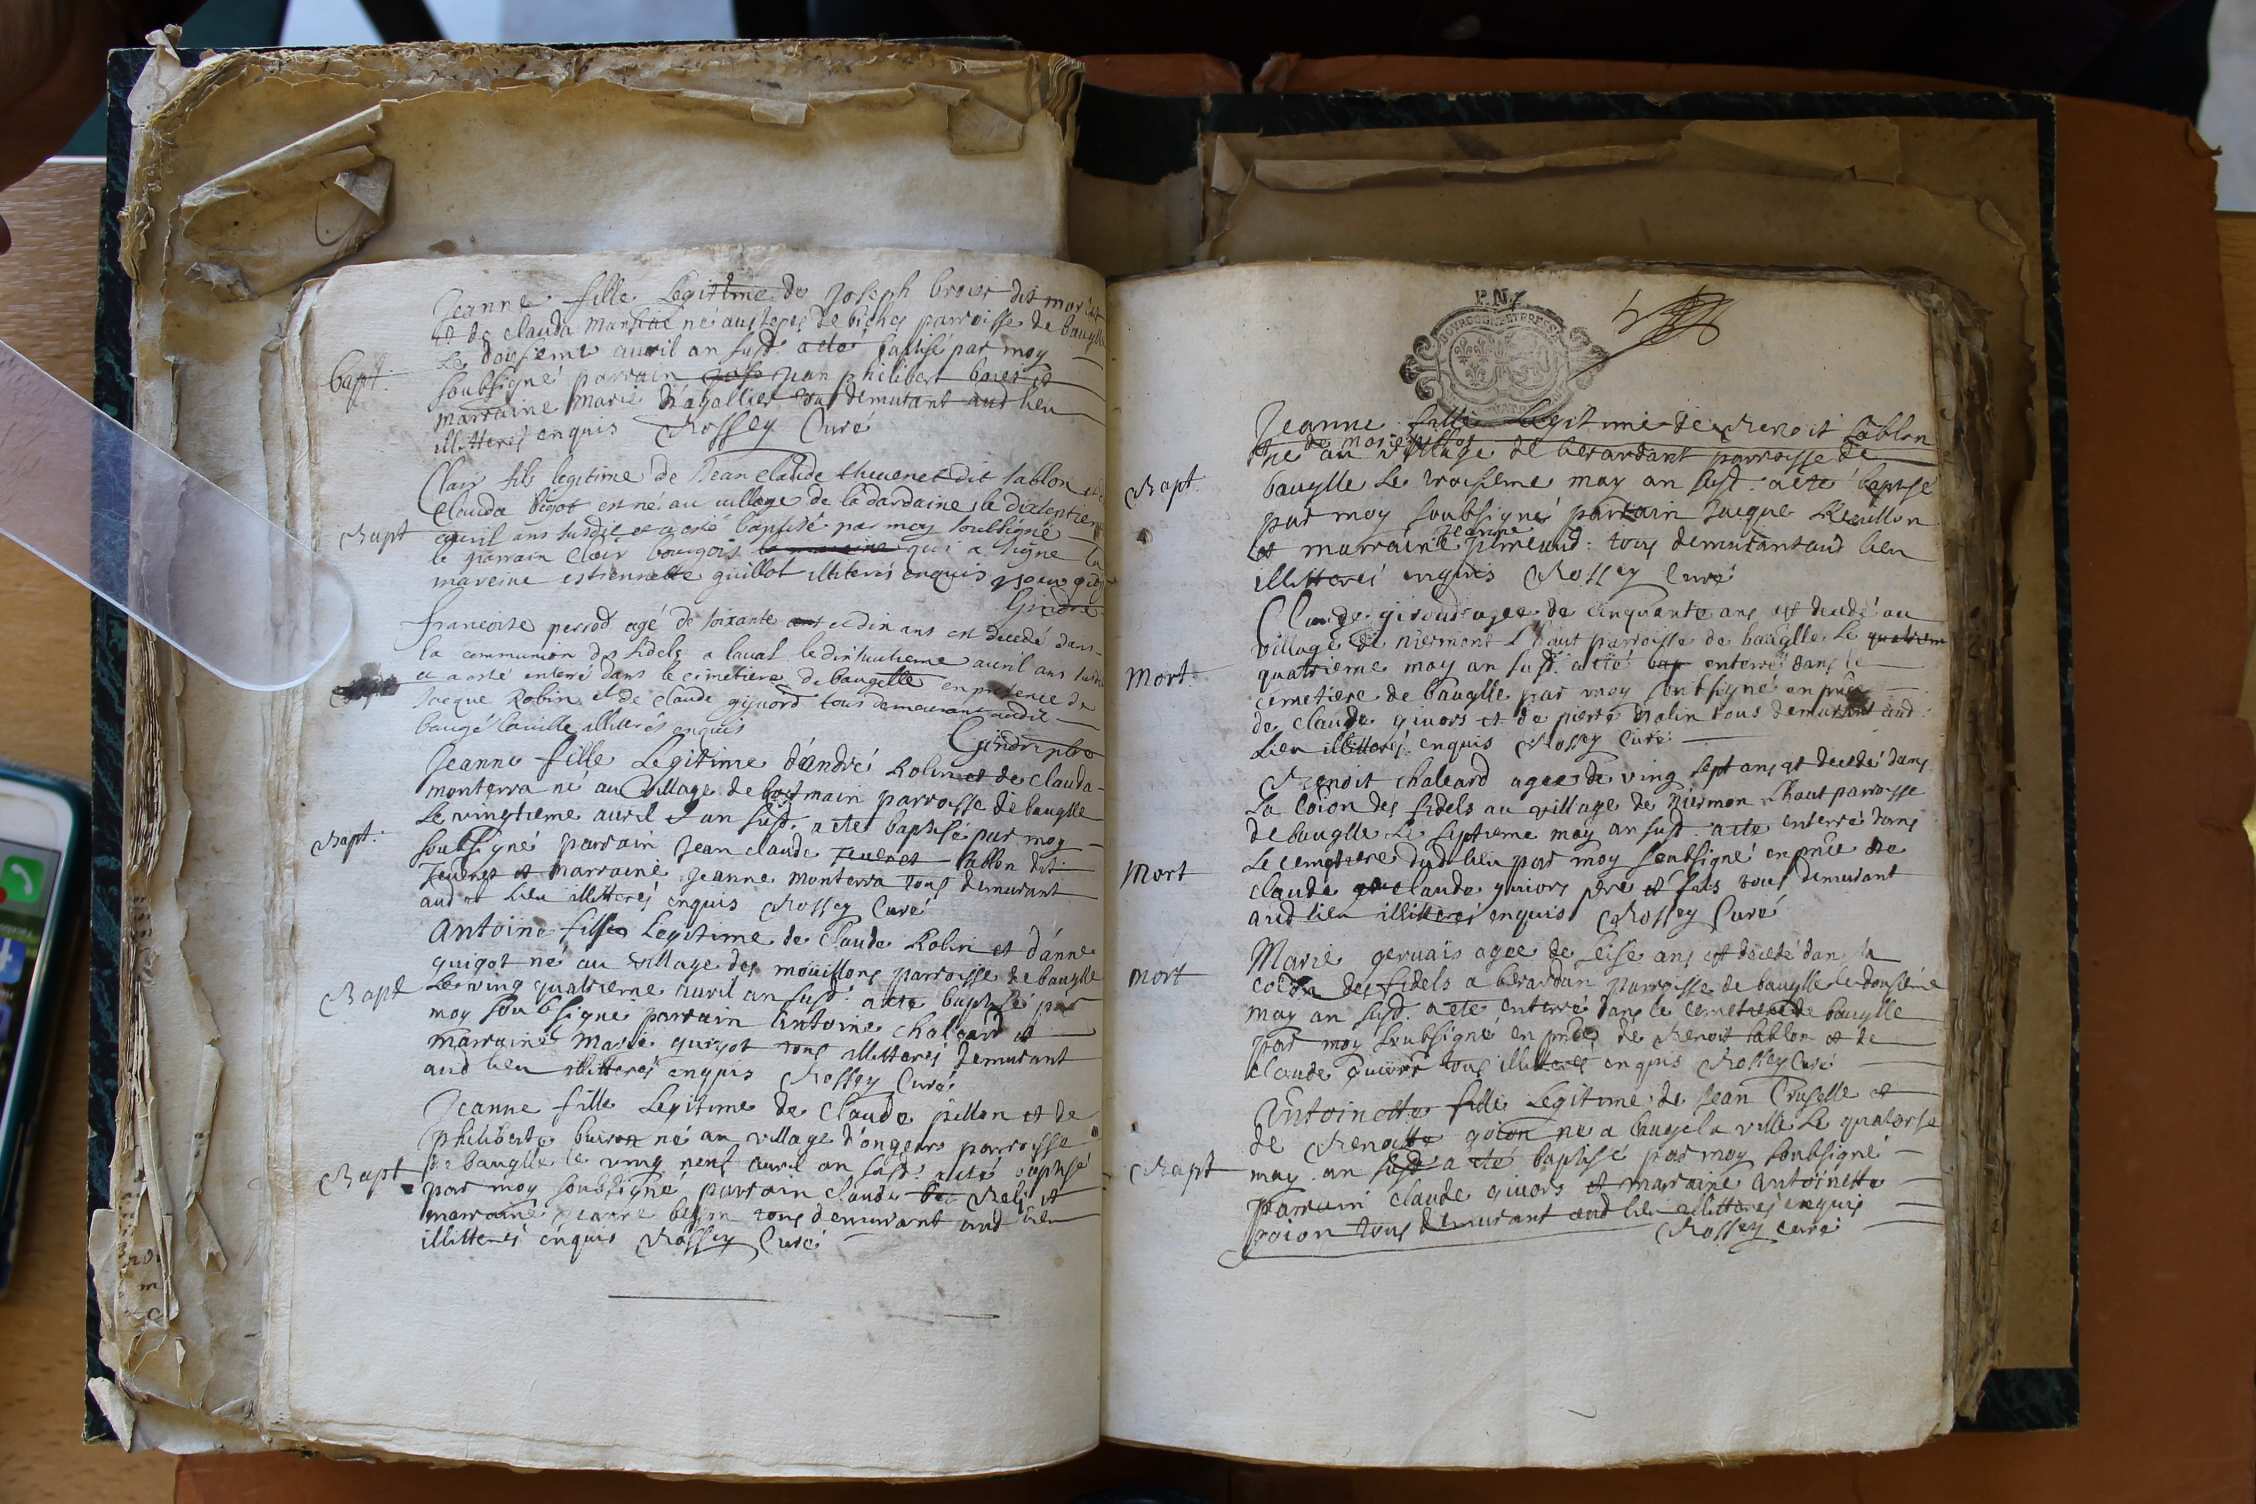 Jeanne fille Legitime de Joseph broier dit
et de clauda né aux de biches parroisse de bauglle
Le dousieme auvril an susd. a ete baptisé par moy
bapt.
soubsigné parrain Jean philibert boier et
marraine marie tous demurant aud lieu
illitterés enquis Rossey Curé
Clair fils legitime de Jean claude theuenet dit sablon et de
clauda bigot est né au uillage de la dardaine le dixseptieme
Bapt
auril ans susdit et a esté baptisé par moy soubsigné
le parrain Clair bourgois qui a signé la
mareine estiennette guillot illiterés enquis
francoise perrod agé de soixante et dix ans est decedé dans
la communion des fidels a laual le dixhuitieme auril ans susdit
et a esté enteré dans le cimetiere de baugelle en presence de
Jacque Robin et de claude giuord tous demeurant audit
baugé lauille illiterés enquis
Jeanne fille Legitime d'andré Robin et de clauda
monterra né au Village de bosmain parroisse de bauglle
Le vingtieme auvril d'an susd. a ete baptisé par moy
Bapt.
soubsigné parrain Jean claude Teuenet sablon dit
Teuenet et marraine Jeanne monterra tous demurant
aud lieu illitterés enquis Rossey Curé
Antoine fils Legitime de claude Robin et d'anne
guigot né au Village des moüillons parroisse de bauglle
Bapt
Le ving quatrieme auvril an susd. a ete baptisé par
moy soubsigné parrain Antoine chaleard et
marraine Marie guigot tous illitterés demurant
aud lieu illitterés enquis Rossey Curé
Jeanne fille Legitime de Claude pillon et de
philiberte buiron né au village d'ongeurs parroisse
de bauglle le ving neuf auvril an susd. a eté baptisé
Bapt
par moy soubsigné parrain claude et
marraine pierre tous demurant aud lieu
illitterés enquis Rossey Curé
Jeanne fille Legitime de Benoit sablon
et de marie
né au village de berardant parroisse de
Bapt.
bauglle Le troisieme may an susd. a ete baptisé
par moy soubsigné parrain Jacque Reuillon
Jeanne
et marraine tous demurant aud lieu
illitterés enquis Rossey Curé
Claude giuord agee de cinquante ans est decedé au
village de niermont L'haut parroisse de bauglle Le quatriem
Mort.
quatrieme may an susd. a eté enterré dans le
cemetiere de baugle par moy soubsigné en pnce
de claude giuors et de pierre tous demurant aud
Lieu illitterés enquis Rossey Curé
Benoit chaleard agee de ving sept ans est decedé dans
La coion des fidels au village de niermon L'haut parroisse
de bauglle Le septieme may an susd. a ete enterré dans
Mort
Le cemetiere dud lieu par moy soubsigné en pnce de
claude claude guiors pere et fils tous demurant
aud lieu illitterés enquis Rossey Curé
Marie gervais agee de seise ans est decedé dans la
mort
coion des fidels a berardan parroisse de baugle le dousieme
may an susd. a ete enterré dans le cemetiere de baugle
par moy soubsigné en pnce de Benoit sablon et de
claude guiors tous illitterés enquis Rossey Curé
Antoinette fille Legitime de Jean Cruselle et
de Benoitte goion né a baugé la ville Le quatorse
may an susd. a eté baptisé par moy soubsigné
Bapt
parrain claude giuors et marraine Antoinette
goion tous demurant aud lieu illitterés enquis
Rossey curé